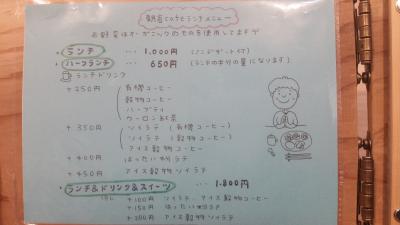 朝音cafeランチメニュー
お野菜はオーガニックのものを使用してます
ランチ … 1,000円 (ミニデザート付)
ハーフランチ … 650円 (ランチの半分の量になります)
ランチドリンク
+250円 有機コーヒー
穀物コーヒー
ハーブティ
ウーロン茶
+350円 ソイラテ (有機コーヒー)
ソイラテ (穀物コーヒー)
アイス穀物コーヒー
+400円 はったい粉ラテ
+450円 アイス穀物ソイラテ
ランチ&ドリンク&スイーツ … 1,800円
+100円 ソイラテ、アイス穀物コーヒー
+150円 はったい粉ラテ
+200円 アイス穀物ソイラテ